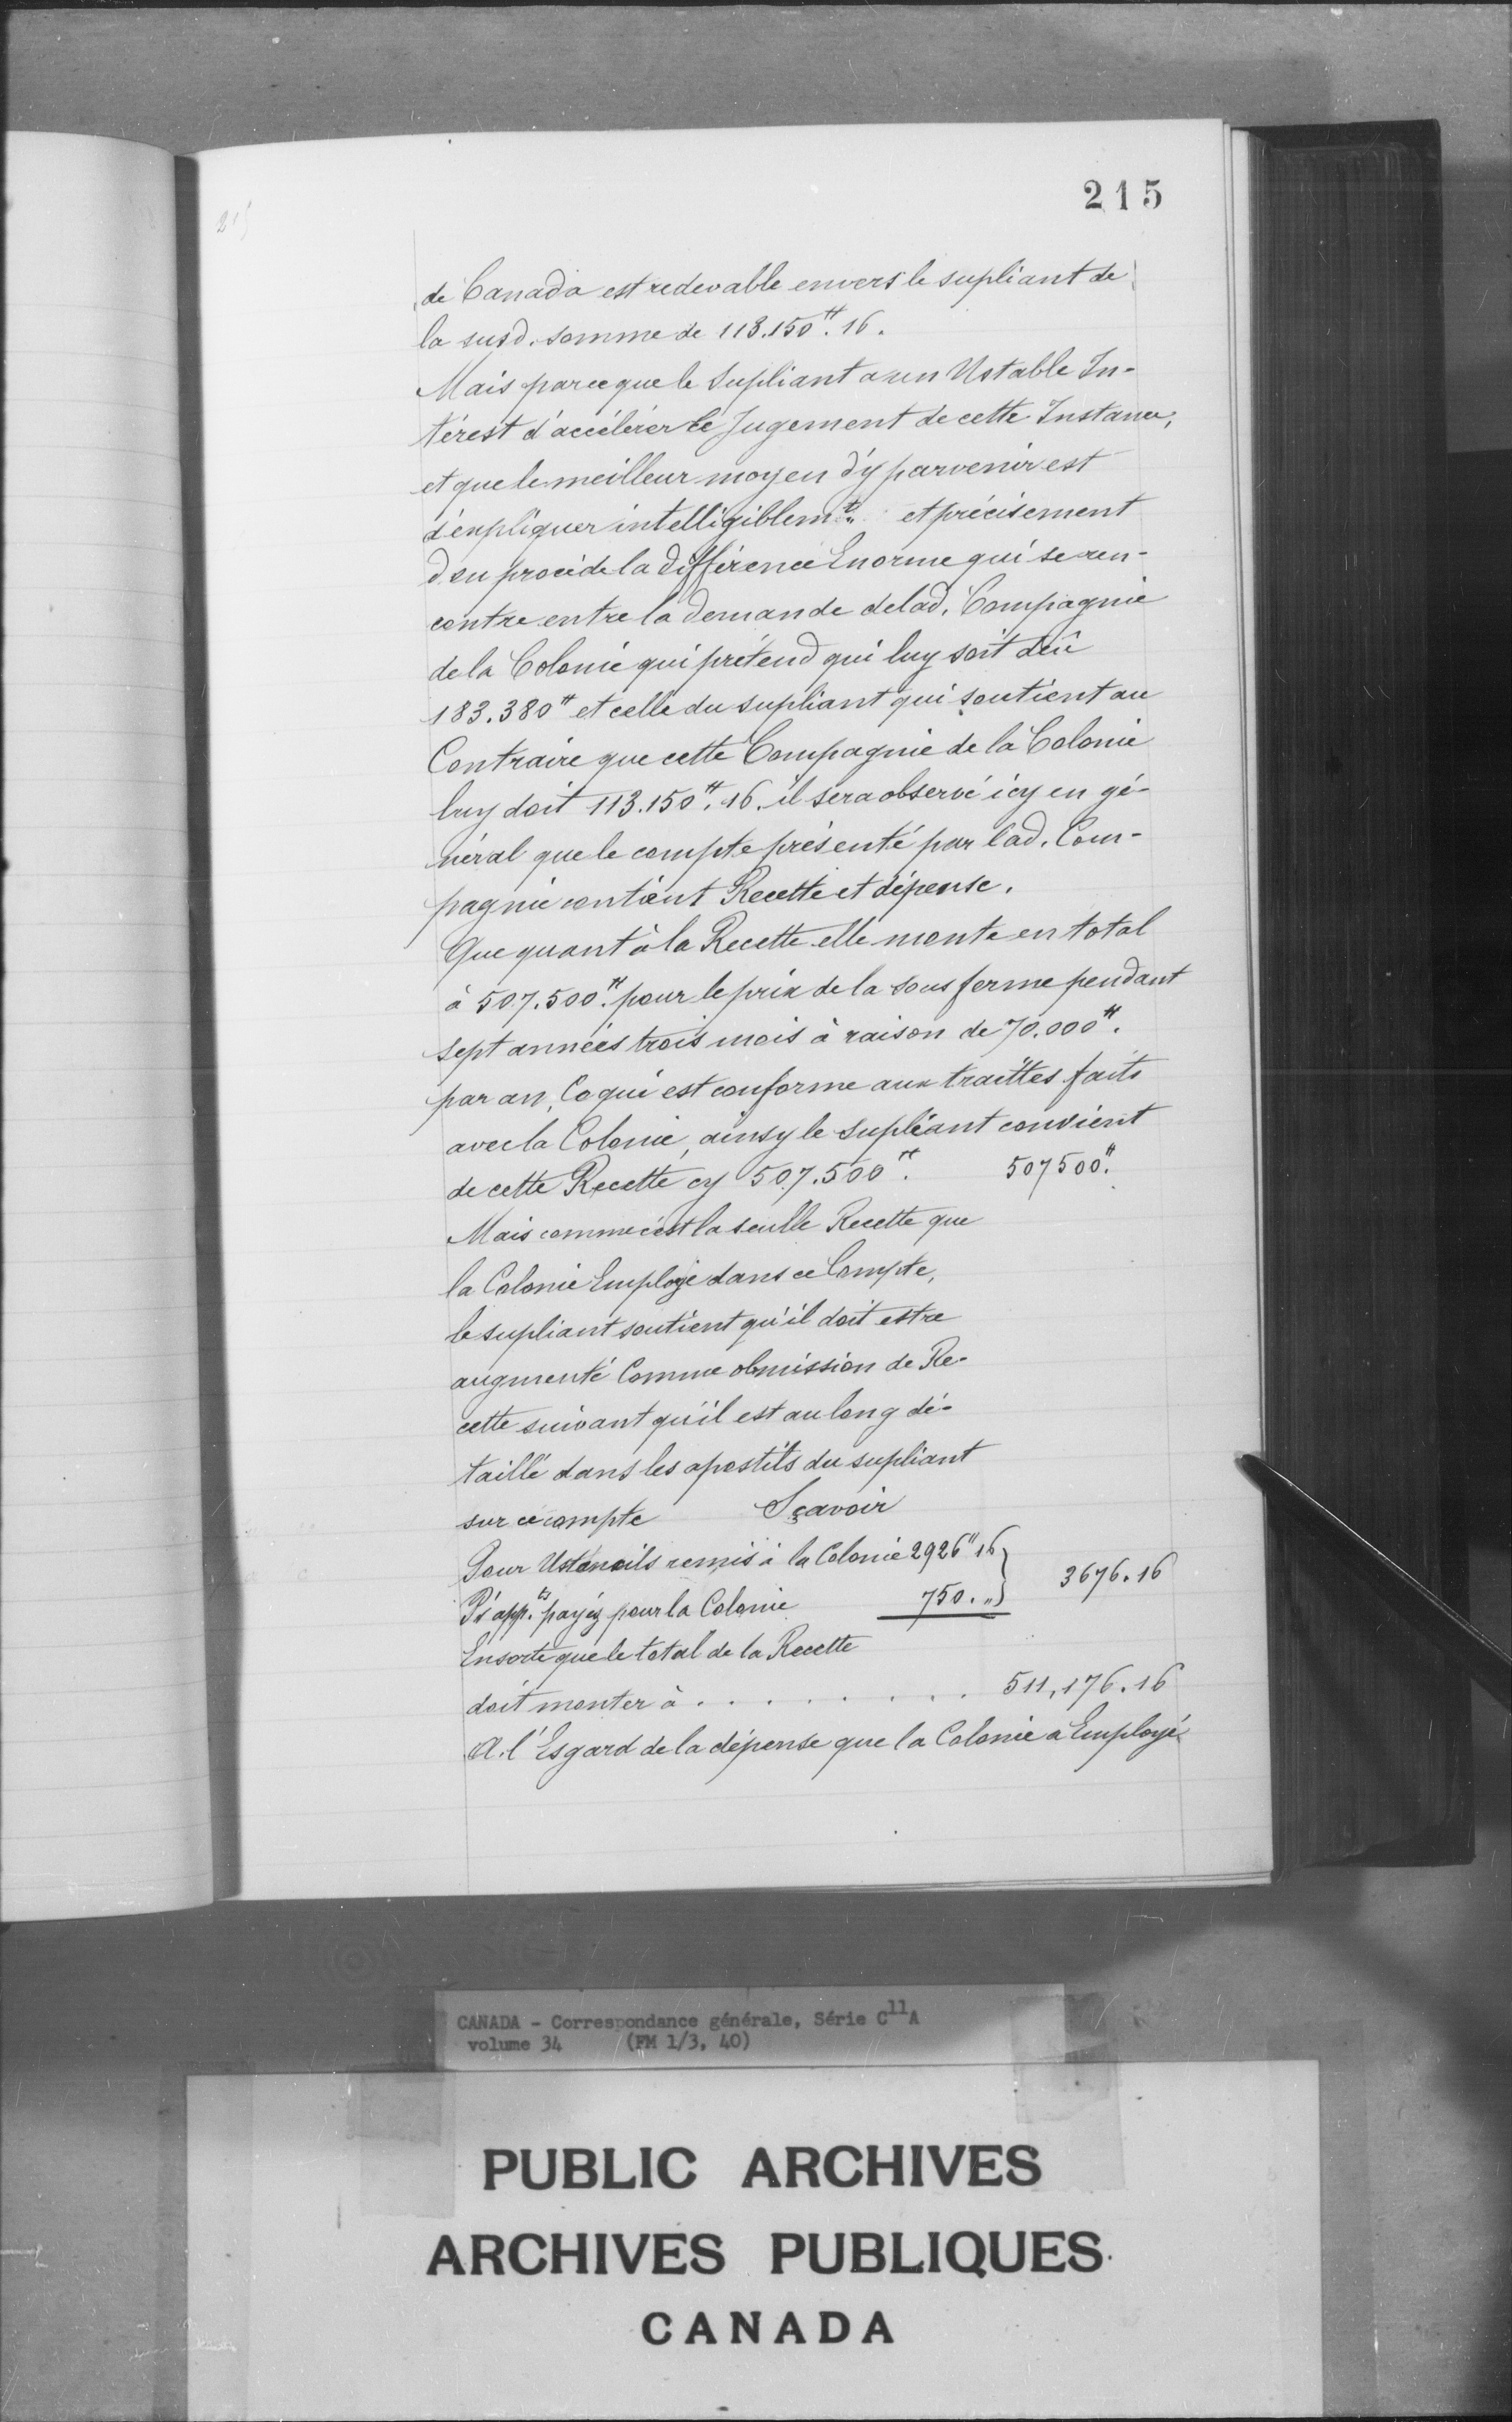 215
215
de Canada est redevable envers le supliant de
la susd. somme de 113.150#.16.
Mais parceque le Supliant a un Notable In-
térest d'accélérer le Jugement de cette Instance,
et que le meilleur moyen d'y parvenir est
d'expliquer intelligiblemt. et précisement
d'ou procéde la différence Enorme qui se ren-
contre entre la demande de lad. Compagnie
de la Colonie qui prétend qui luy soit deû
183.380# et celle du supliant qui soutient au
Contraire que cette Compagnie de la Colonie
luy doit 113.150#.16. il sera observé icy en gé-
néral que le compte présenté par lad. Com-
pagnie contient Recette et dépense.
Que quant à la Recette elle monte en total
à 507.500#. pour le prix de la sous ferme pendant
sept années trois mois à raison de 70.000#.
par an, Ce qui est conforme aux traittes faits
avec la Colonie, ainsy le supliant convient
de cette Recette cy 507.500#. 507500#.
Mais comme c'est la seulle Recette que
la Colonie Employe dans ce Compte,
le supliant soutient qu'il doit estre
augmenté Comme obmission de Re-
cette suivant qu'il est au long dé-
taillé dans les apostils du supliant
sur ce compte Sçavoir
Pour Ustencils remis à la Colonie 2926#16 } 3676.16
Pr app.ts payéz pour la Colonie 750.„ }
Ensorte que le total de la Recette
doit monter à . . . . . . . . 511,176.16
A l'Esgard de la dépense que la Colonie a Employé
CANADA - Correspondance générale, Série C11A
volume 34 (FM 1/3, 40)
PUBLIC ARCHIVES
ARCHIVES PUBLIQUES
CANADA